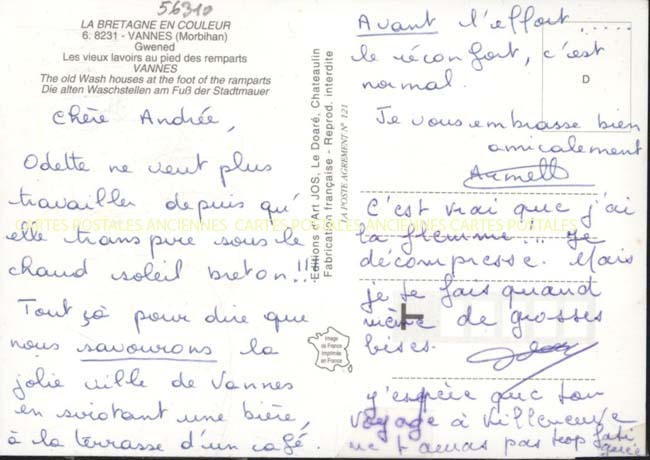 56310
LA BRETAGNE EN COULEUR
6. 8231 - VANNES (Morbihan)
Gwened
Les vieux lavoirs au pied des remparts
VANNES
The old Wash houses at the foot of the ramparts
Die alten Waschstellen am Fuß der Stadtmauer
Chère Andrée,
Odette ne veut plus
travailler depuis qu'
elle transpire sous le
chaud soleil breton!!!
Tout çà pour dire que
nous savourons la
jolie ville de Vannes
en sirotant une bière,
à la terrasse d'un café.
Editions d'Art JOS, Le Doaré, Chateaulin
Fabrication française - Reprod. interdite
LA POSTE AGREMENT N° 121
Image
de France
Imprimée
en France
Avant l'effort,
le réconfort, c'est
normal.
Je vous embrasse bien
amicalement
Armell
D
C'est vrai que j'ai
la flemme... Je
décompresse. Mais
je te fais quand
même de grosses
bises.
T
J'espère que ton
voyage à Villeneuve
ne t'auras pas trop fati
guée
CARTES POSTALES ANCIENNES CARTES POSTALES ANCIENNES CARTES POSTALES